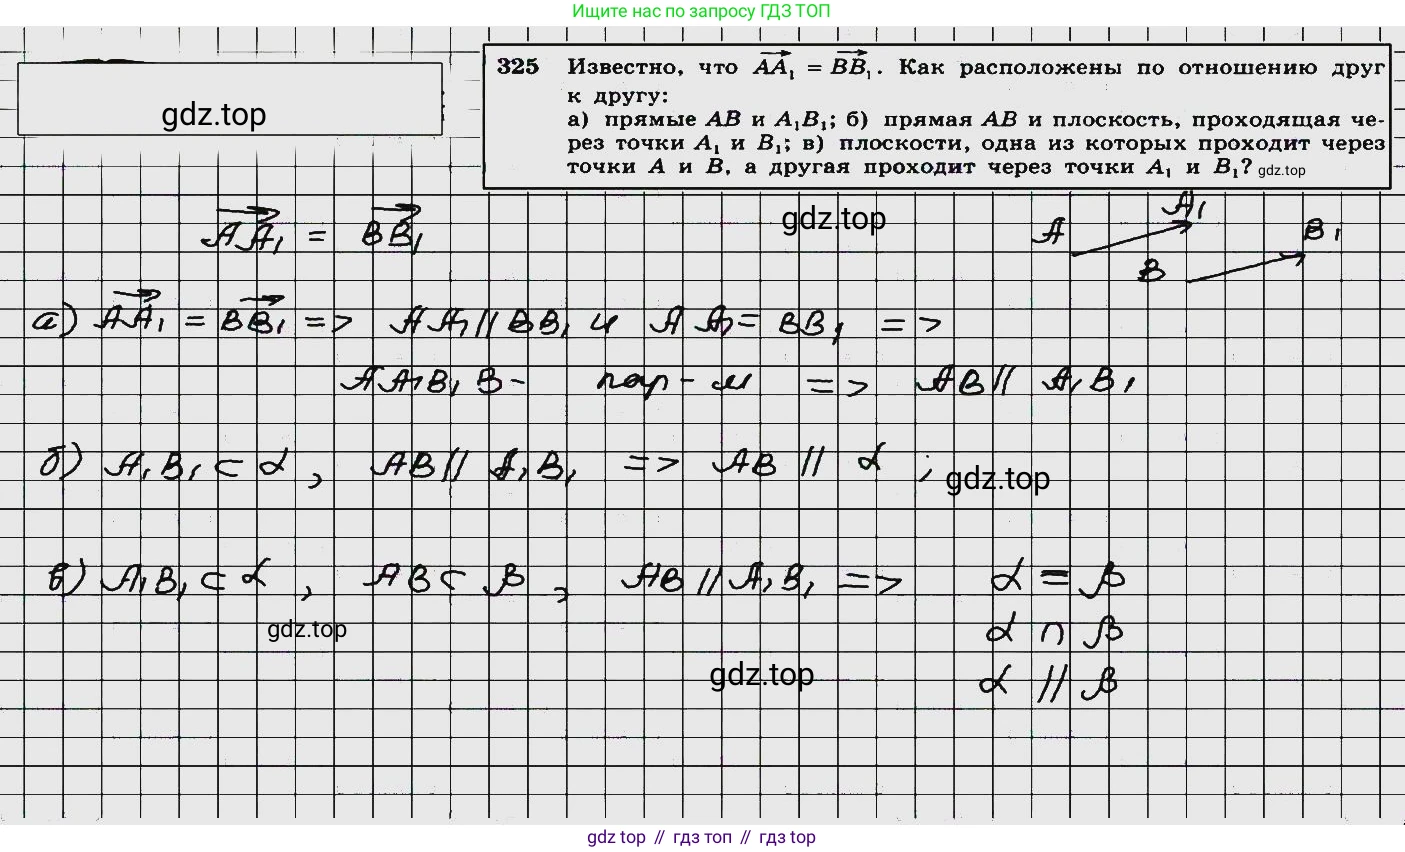 Ищите нас по запросу ГДЗ ТОП
gdz.top
325 Известно, что AA₁ = BB₁. Как расположены по отношению друг
к другу:
а) прямые AB и A₁B₁; б) прямая AB и плоскость, проходящая че-
рез точки A₁ и B₁; в) плоскости, одна из которых проходит через
точки A и B, а другая проходит через точки A₁ и B₁? gdz.top
AA₁ = BB₁
gdz.top
A A₁ B B₁
а) AA₁ = BB₁ => AA₁ // BB₁ и AA₁ = BB₁ =>
AA₁B₁B - пар-м => AB // A₁B₁
б) A₁B₁ ⊂ α, AB // A₁B₁ => AB // α ;
gdz.top
в) A₁B₁ ⊂ α, AB ⊂ β, AB // A₁B₁ => α = β
gdz.top
α ∩ β
gdz.top
α // β
gdz top // гдз топ // гдз top